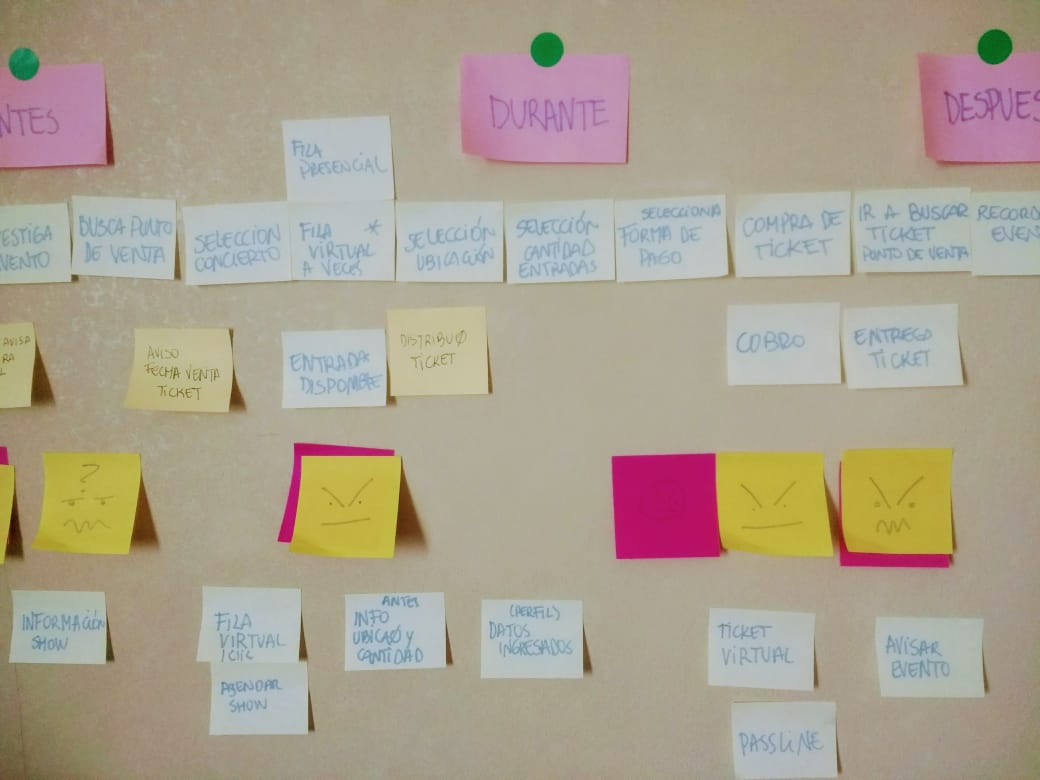 NTES
DURANTE
DESPUES
FILA
PRESENCIAL
ESTIGA
VENTO
BUSCA PUNTO
DE VENTA
SELECCION
CONCIERTO
FILA *
VIRTUAL
A VECES
SELECCIÓN
UBICACIÓN
SELECCIÓN
CANTIDAD
ENTRADAS
SELECCIONA
FORMA DE
PAGO
COMPRA DE
TICKET
IR A BUSCAR
TICKET
PUNTO DE VENTA
RECORD
EVEN
AVISA
RA
L
AVISO
FECHA VENTA
TICKET
ENTRADA
DISPONIBLE
DISTRIBUO
TICKET
COBRO
ENTREGA
TICKET
?
INFORMACIÓN
SHOW
FILA
VIRTUAL
/CLIC
AGENDAR
SHOW
ANTES
INFO
UBICAO Y
CANTIDAD
(PERFIL)
DATOS
INGRESADOS
TICKET
VIRTUAL
PASSLINE
AVISAR
EVENTO